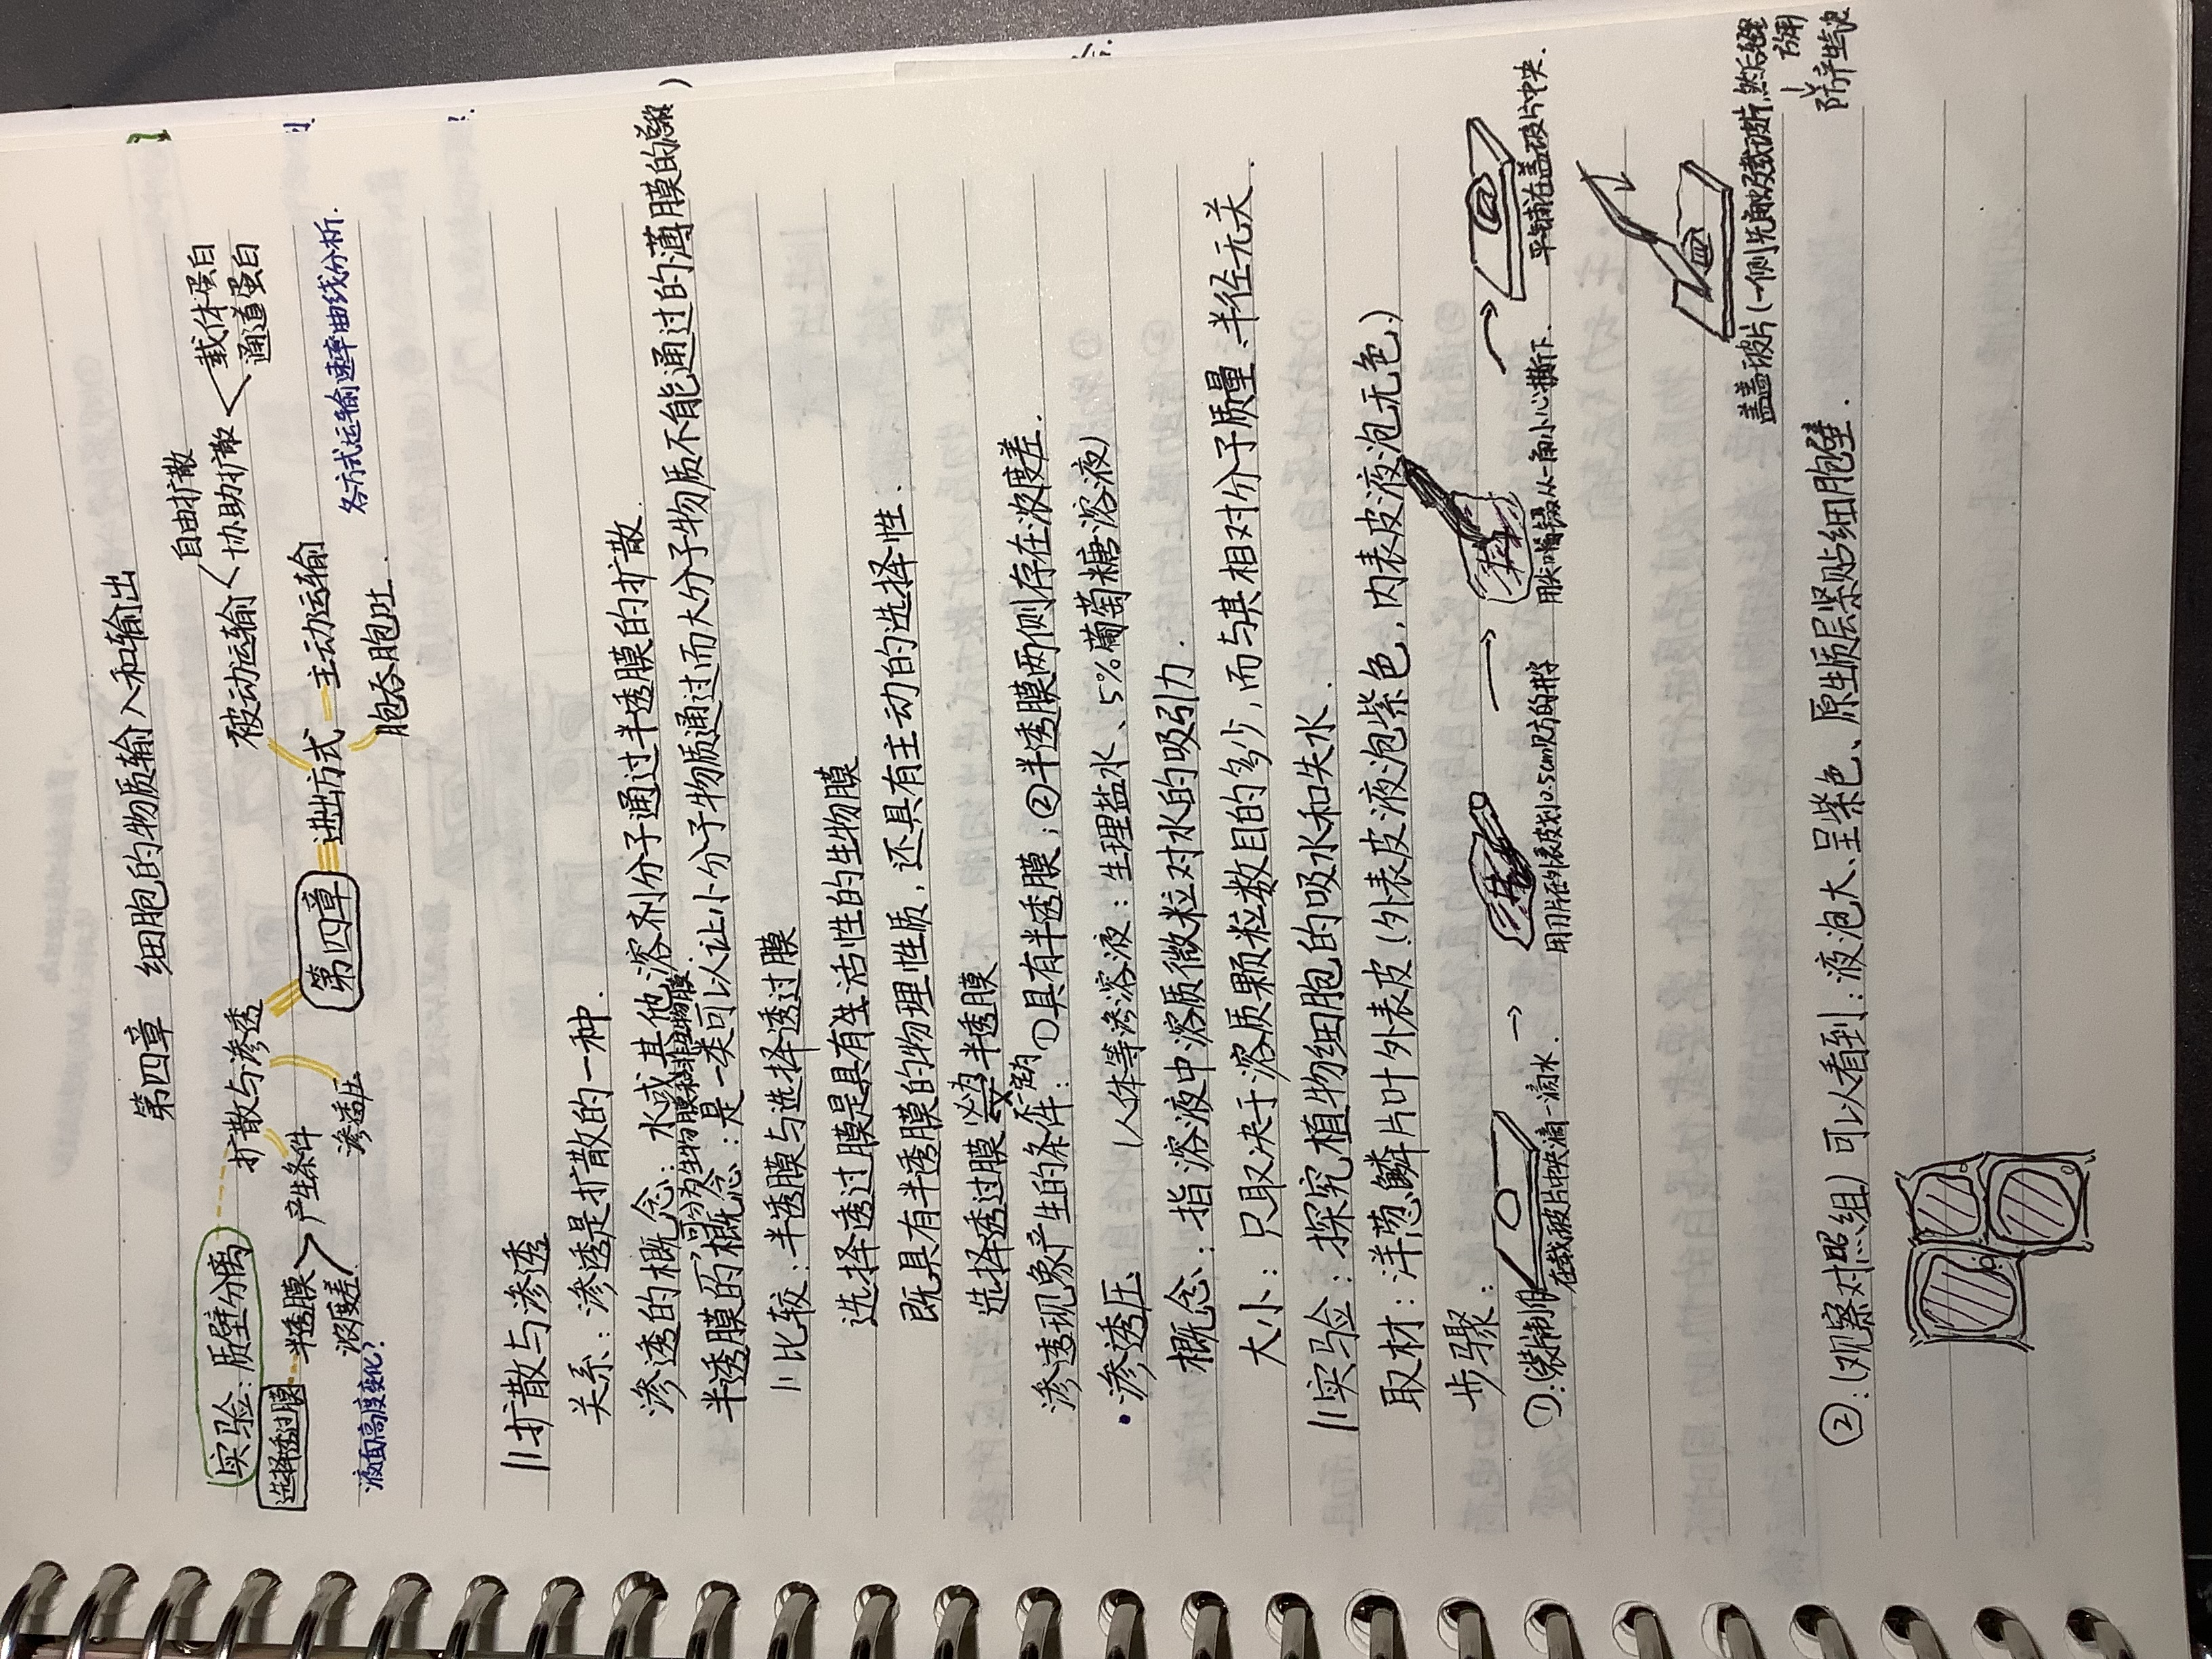 第四章 细胞的物质输入和输出
实验:质壁分离
扩散与渗透
选择透过膜
半透膜
浓度差
产生条件
渗透压
液面高度变化?
第四章
进出方式
被动运输
自由扩散
协助扩散
载体蛋白
通道蛋白
主动运输
胞吞胞吐.
各方式运输速率曲线分析.
扩散与渗透
关系:渗透是扩散的一种.
渗透的概念:水或其他溶剂分子通过半透膜的扩散.
(可分为生物膜和非生物膜)
半透膜的概念:是一类可以让小分子物质通过而大分子物质不能通过的薄膜的总称)
比较:半透膜与选择透过膜
选择透过膜是具有生活性的生物膜
既具有半透膜的物理性质,还具有主动的选择性.
选择透过膜 必为 不一定为 半透膜
渗透现象产生的条件:①具有半透膜;②半透膜两侧存在浓度差.
·渗透压 (人体等渗溶液:生理盐水、5%葡萄糖溶液)
概念:指溶液中溶质微粒对水的吸引力.
大小:只取决于溶质颗粒数目的多少,而与其相对分子质量、半径无关.
实验:探究植物细胞的吸水和失水.
取材:洋葱鳞片叶外表皮(外表皮液泡紫色,内表皮液泡无色)
步骤:
①:(装制)
在载玻片中央滴一滴水.
用刀片在外表皮划0.5cm见方的井字
用尖嘴镊从一角小心撕下.
平铺在盖玻片中央.
盖盖玻片(一侧先接触载玻片,然后缓
防产生气泡
②:(观察对照组)可以看到:液泡大、呈紫色、原生质层紧贴细胞壁.